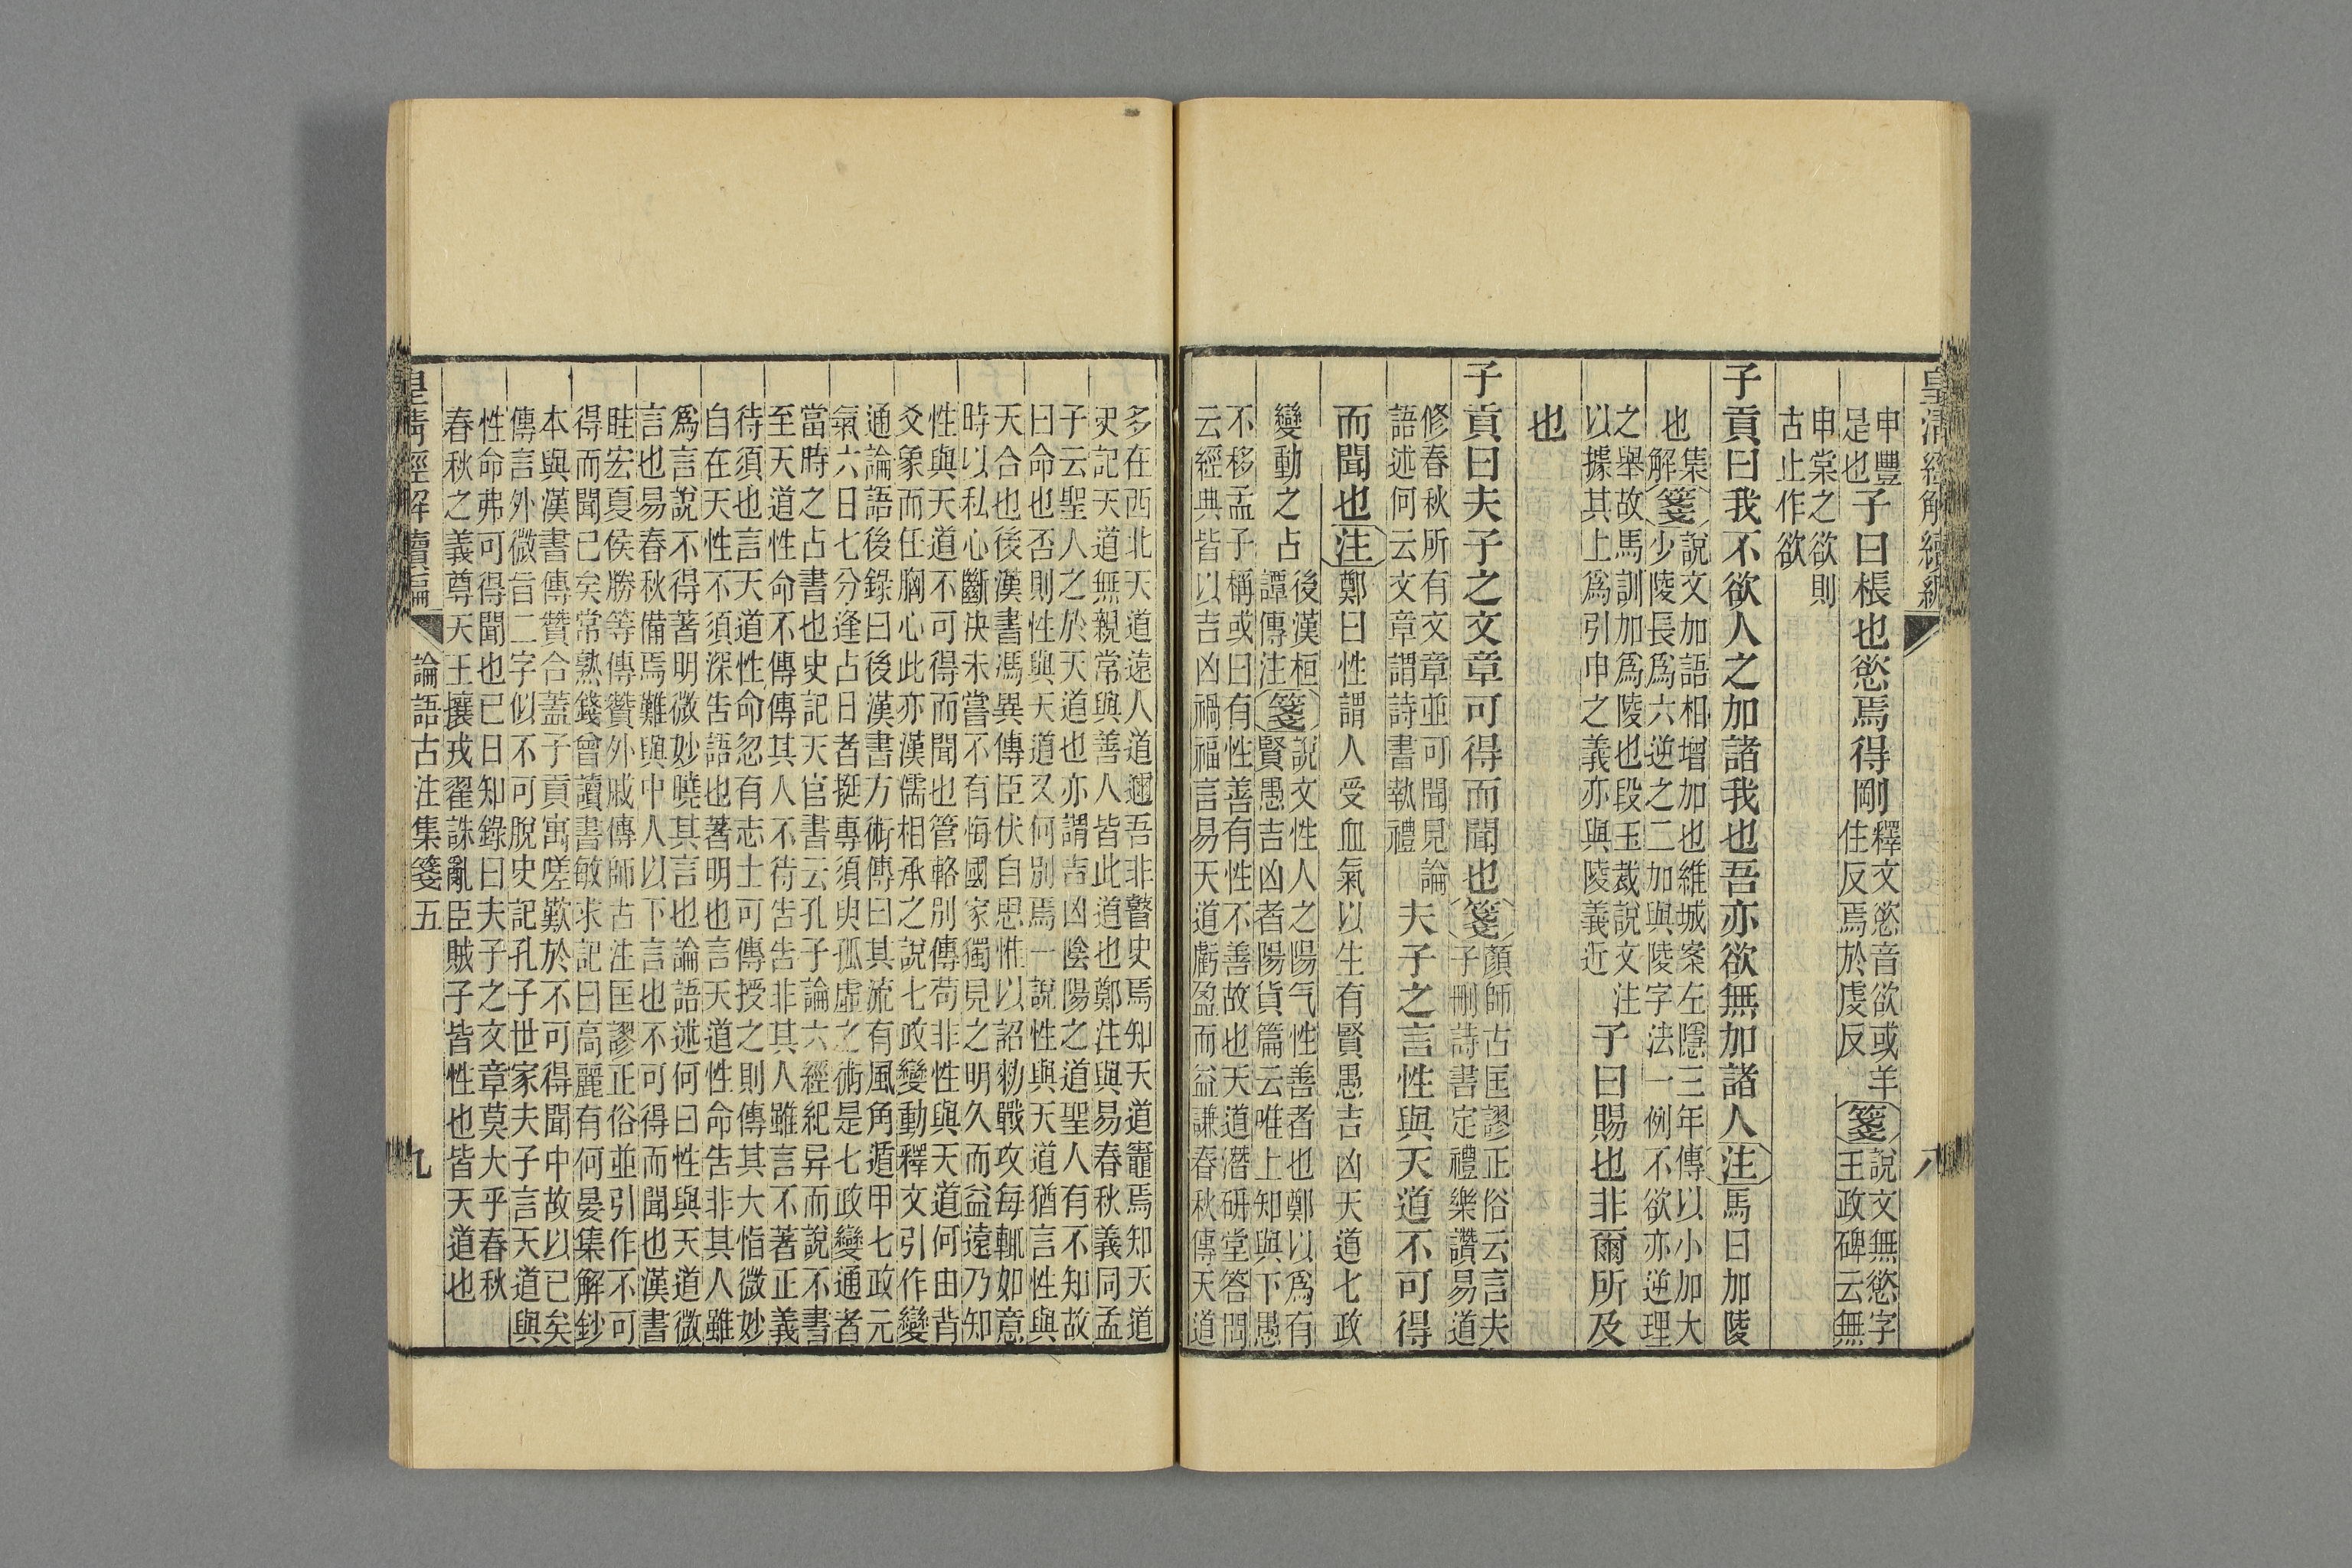 皇清經解續編 八
申豐足也子曰棖也慾焉得剛釋文慾音欲或羊住反焉於虔反箋說文無慾字王政碑云無
申棠之欲則古止作欲
子貢曰我不欲人之加諸我也吾亦欲無加諸人注馬曰加陵
也集解箋說文加語相增加也維城案左隱三年傳以小加大少陵長爲六逆之二加與陵字法一例不欲亦逆理
之舉故馬訓加爲陵也段玉裁說文注以據其上爲引申之義亦與陵義近子曰賜也非爾所及
也
子貢曰夫子之文章可得而聞也箋顏師古匡謬正俗云言夫子刪詩書定禮樂讚易道
修春秋所有文章並可聞見論語述何云文章謂詩書執禮夫子之言性與天道不可得
而聞也注鄭曰性謂人受血氣以生有賢愚吉凶天道七政
變動之占後漢桓譚傳注箋說文性人之陽气性善者也鄭以爲有賢愚吉凶者陽貨篇云唯上知與下愚
不移孟子稱或曰有性善有性不善故也天道潛硏堂答問
云經典皆以吉凶禍福言易天道虧盈而益謙春秋傳天道
多在西北天道遠人道邇吾非瞽史焉知天道竈焉知天道
史記天道無親常與善人皆此道也鄭注與易春秋義同孟
子云聖人之於天道也亦謂吉凶陰陽之道聖人有不知故
曰命也否則性與天道又何別焉一說性與天道猶言性與
天合也後漢書馮異傳臣伏自思惟以詔勑戰攻每輒如意
時以私心斷決未嘗不有悔國家獨見之明久而益遠乃知
性與天道不可得而聞也管輅別傳苟非性與天道何由背
爻象而任胸心此亦漢儒相承之說七政變動釋文引作變
通論語後錄曰後漢書方術傳曰其流有風角遁甲七政元
氣六日七分逢占日者挺專須臾孤虛之術是七政變通者
當時之占書也史記天官書云孔子論六經紀异而說不書
至天道性命不傳傳其人不待告告非其人雖言不著正義
待須也言天道性命忽有志士可傳授之則傳其大恉微妙
自在天性不須深告語也著明也言天道性命告非其人雖
爲言說不得著明微妙曉其言也論語述何曰性與天道微
言也易春秋備焉難與中人以下言也不可得而聞也漢書
眭宏夏侯勝等傳贊外戚傳師古注匡謬正俗並引作不可
得而聞已矣常熟錢曾讀書敏求記曰高麗有何晏集解鈔
本與漢書傳贊合蓋子貢寓嗟歎於不可得聞中故以已矣
傳言外微旨二字似不可脫史記孔子世家夫子言天道與
性命弗可得聞也已日知錄曰夫子之文章莫大乎春秋
春秋之義尊天王攘戎翟誅亂臣賊子皆性也皆天道也
皇淸經解續編 論語古注集箋五 九